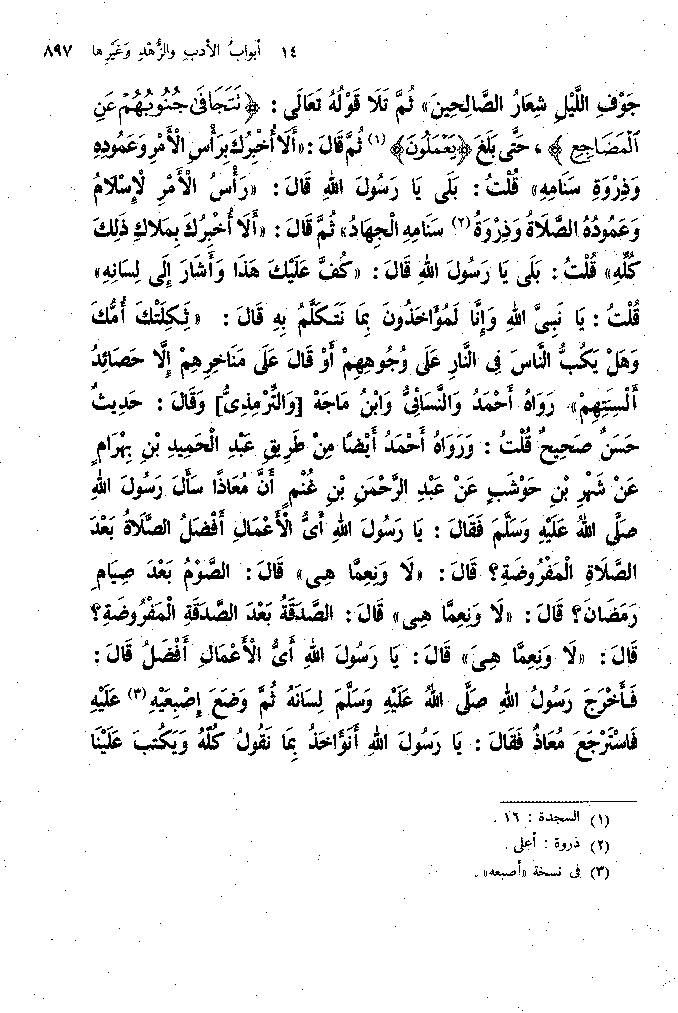 ١٤ أبوابُ الأدبِ والزُّهْدِ وَغَيْرِها ٨٩٧
جَوْفِ اللَّيْلِ شِعَارُ الصَّالِحِينَ» ثُمَّ تَلَا قَوْلُهُ تَعَالَى : ﴿ نَتَجَافَى جُنُوبُهُمْ عَنِ
الْمَضَاجِعِ ﴾ ، حَتَّى بَلَغَ ﴿يَعْمَلُونَ﴾ (١) ثُمَّ قَالَ : «أَلَا أُخْبِرُكَ بِرَأْسِ الْأَمْرِ وَعَمُودِهِ
وَذِرْوَةِ سَنَامِهِ» قُلْتُ : بَلَى يَا رَسُولَ اللهِ قَالَ : «رَأْسُ الْأَمْرِ لْإِسْلَامُ
وَعَمُودُهُ الصَّلَاةُ وَذِرْوَةُ (٢) سَنَامِهِ الْجِهَادُ» ثُمَّ قَالَ : «أَلَا أُخْبِرُكَ بِمَلَاكِ ذَلِكَ
كُلِّهِ» قُلْتُ : بَلَى يَا رَسُولَ اللهِ قَالَ : «كُفَّ عَلَيْكَ هَذَا وَأَشَارَ إِلَى لِسَانِهِ»
قُلْتُ : يَا نَبِيَّ اللهِ وَإِنَّا لَمُؤَاخَذُونَ بِمَا نَتَكَلَّمُ بِهِ قَالَ : «ثَكِلَتْكَ أُمُّكَ
وَهَلْ يَكُبُّ النَّاسَ فِى النَّارِ عَلَى وُجُوهِهِمْ أَوْ قَالَ عَلَى مَنَاخِرِهِمْ إِلَّا حَصَائِدُ
أَلْسِنَتِهِمْ» رَوَاهُ أَحْمَدُ وَالنَّسَائِيُّ وَابْنُ مَاجَهْ [وَالتِّرْمِذِيُّ] وَقَالَ : حَدِيثٌ
حَسَنٌ صَحِيحٌ قُلْتُ : وَرَوَاهُ أَحْمَدُ أَيْضًا مِنْ طَرِيقِ عَبْدِ الْحَمِيدِ بْنِ بِهْرَامٍ
عَنْ شَهْرِ بْنِ حَوْشَبٍ عَنْ عَبْدِ الرَّحْمَنِ بْنِ غُنْمٍ أَنَّ مُعَاذًا سَأَلَ رَسُولَ اللهِ
صَلَّى اللهُ عَلَيْهِ وَسَلَّمَ فَقَالَ : يَا رَسُولَ اللهِ أَىُّ الْأَعْمَالِ أَفْضَلُ الصَّلَاةُ بَعْدَ
الصَّلَاةِ الْمَفْرُوضَةِ؟ قَالَ : «لَا وَنِعِمَّا هِىَ» قَالَ : الصَّوْمُ بَعْدَ صِيَامِ
رَمَضَانَ؟ قَالَ : «لَا وَنِعِمَّا هِىَ» قَالَ : الصَّدَقَةُ بَعْدَ الصَّدَقَةِ الْمَفْرُوضَةِ؟
قَالَ : «لَا وَنِعِمَّا هِىَ» قَالَ : يَا رَسُولَ اللهِ أَىُّ الْأَعْمَالِ أَفْضَلُ قَالَ :
فَأَخْرَجَ رَسُولُ اللهِ صَلَّى اللهُ عَلَيْهِ وَسَلَّمَ لِسَانَهُ ثُمَّ وَضَعَ إِصْبِعَيْهِ (٣) عَلَيْهِ
فَاسْتَرْجَعَ مُعَاذٌ فَقَالَ : يَا رَسُولَ اللهِ أَنُؤَاخَذُ بِمَا نَقُولُ كُلَّهُ وَيَكْتُبُ عَلَيْنَا
(١) السجدة : ١٦ .
(٢) ذروة : أعلى .
(٣) فى نسخة «أصبعه» .